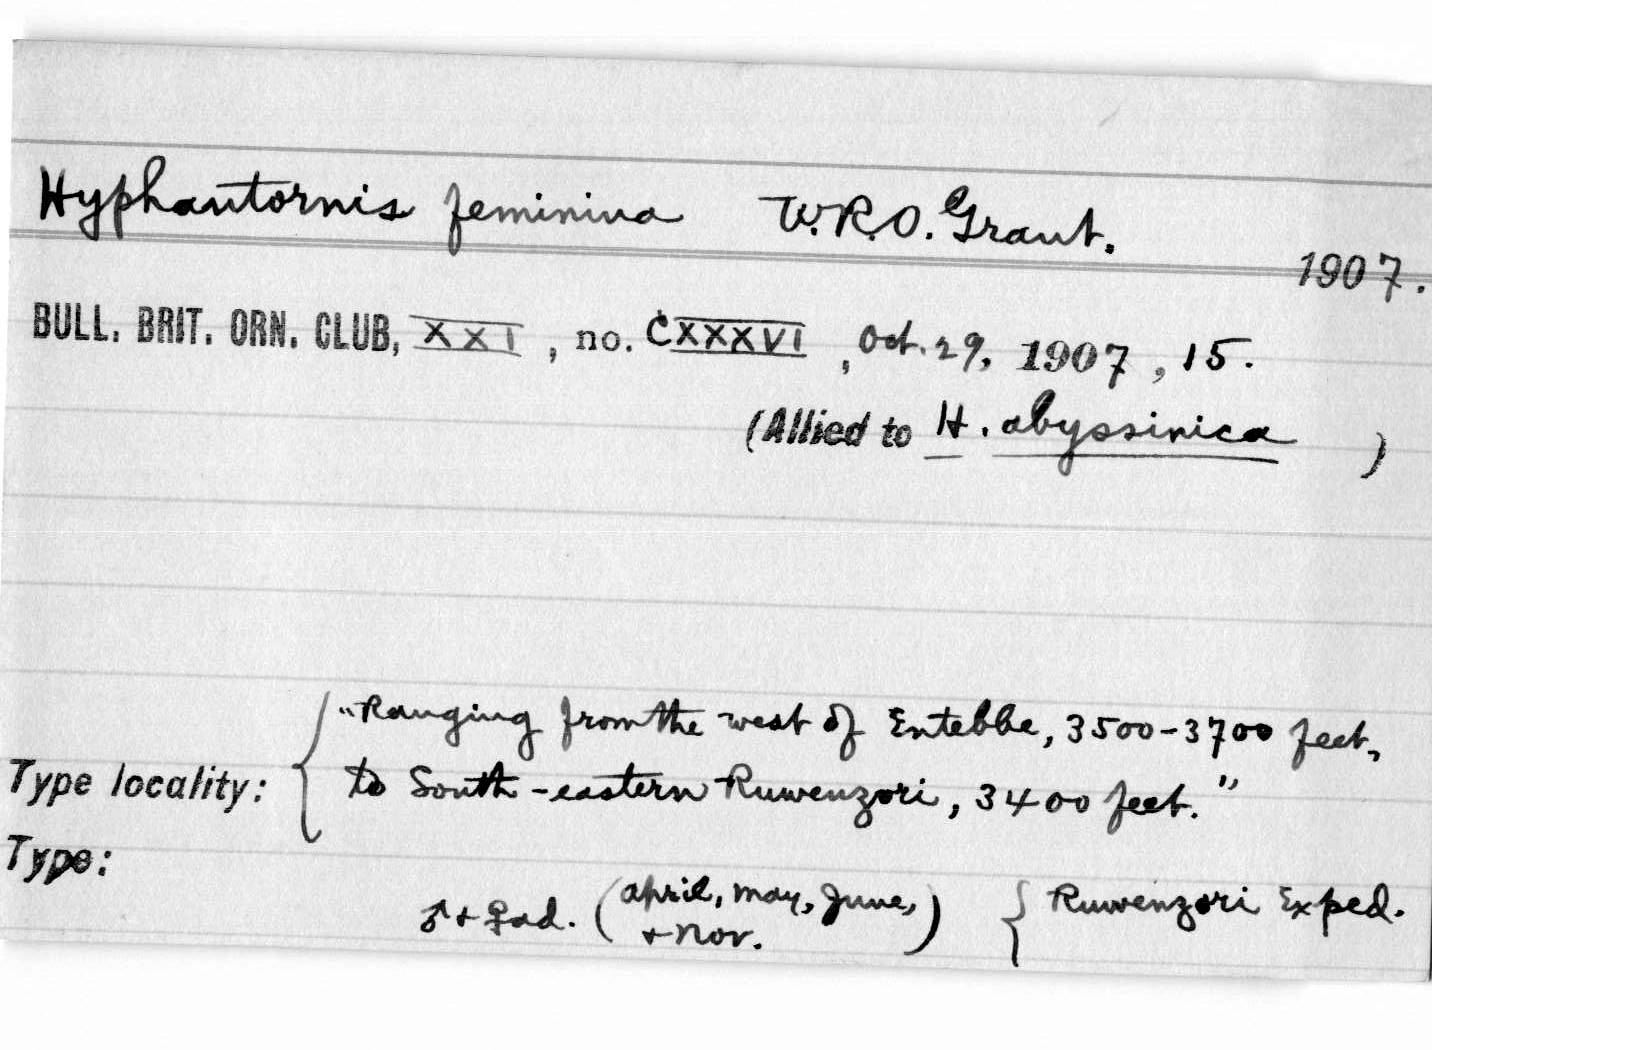 Hyphantornis feminina W.R.O. Grant.
1907.
BULL. BRIT. ORN. CLUB, XXI, no. CXXXVI, Oct. 29, 1907, 15.
(Allied to H. abyssinica )
"Ranging from the west of Entebbe, 3500-3700 feet,
Type locality: { to South-eastern Ruwenzori, 3400 feet."
Type:
♂ + ♀ ad. (April, May, June, + Nov.) { Ruwenzori Exped.